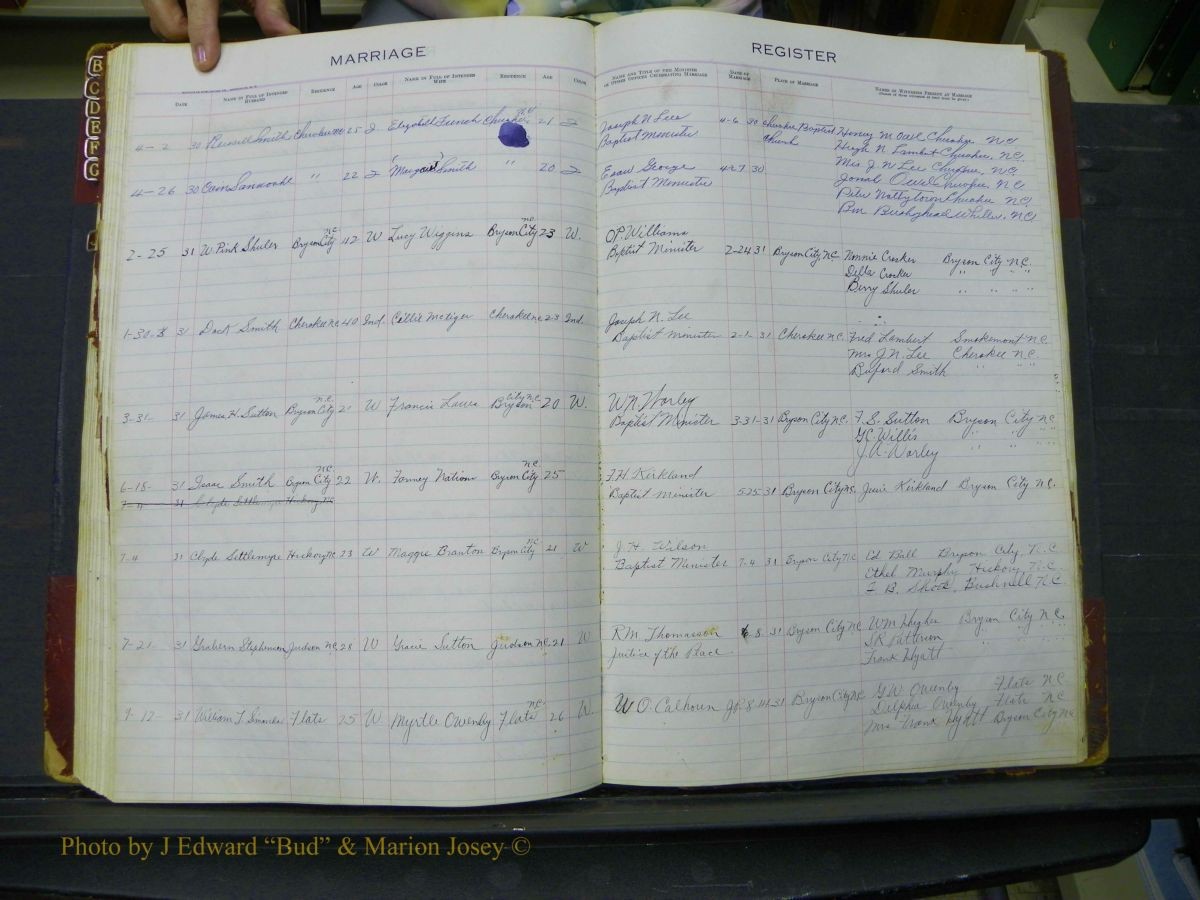 MARRIAGE REGISTER
B
C
D
E
F
G
DATE NAME IN FULL OF INTENDED HUSBAND RESIDENCE AGE COLOR NAME IN FULL OF INTENDED WIFE RESIDENCE AGE COLOR NAME AND TITLE OF THE MINISTER OR OTHER OFFICER CELEBRATING MARRIAGE DATE OF MARRIAGE PLACE OF MARRIAGE NAMES OF WITNESSES PRESENT AT MARRIAGE
4-2 30 Russell Smith Cherokee NC 25 Elizabeth French 21 Joseph N Lee 4-6 30 Cherokee Baptist Henry M Owl Cherokee, NC
Baptist Minister Church Hugh N. Lambert Cherokee, NC.
Mrs J. N Lee Cherokee, NC
4-26 30 Cam Sannooke " 22 Margaret Smith " 20 Evans George 4-27 30 Jonah Owl Cherokee, NC
Baptist Minister Cherokee NC.
Bushyhead NC
2-25 31 W. Pink Shuler Bryson City N.C. 42 W Lucy Wiggins Bryson City N.C. 23 W. O.P. Williams
Baptist Minister 2-24 31 Bryson City N.C. Nonnie Crocker Bryson City N.C.
Della Crocker " " " "
Berry Shuler " " " "
1-30 31 Dock Smith Cherokee N.C. 40 Ind. Callie Cherokee N.C. 23 Ind. Joseph N. Lee
Baptist minister 2-1 31 Cherokee N.C. Fred Lambert Smokemont N.C.
Mrs J. N. Lee Cherokee N.C.
Buford Smith " " "
3-31- 31 James H. Sutton Bryson City N.C. 21 W Francis Bryson City N.C. 20 W. W N Worley
Baptist Minister 3-31-31 Bryson City N.C. F. S. Sutton Bryson City N.C.
Willis " " " "
J. A. Worley
6-18- 31 Isaac Smith Bryson City N.C. 22 W. Fanney Nations Bryson City N.C. 25 F. H Kirkland
Baptist Minister 5 25 31 Bryson City N.C. Kirkland Bryson City N.C.
7-4 31 Clyde Settlemyre Hickory N.C.
7-4 31 Clyde Settlemyre Hickory N.C. 23 W Maggie Branton Bryson City N.C. 21 W J. H. Wilson
Baptist Minister 7-4 31 Bryson City N.C. Ed Ball Bryson City N.C.
Ethel Murphy Hickory N.C.
Bushnell N.C.
7-21- 31 Grahern Stephenson Judson N.C. 28 W Gracie Sutton Judson N.C. 21 W R M. Thomasson 8 31 Bryson City N.C. W M Hughes Bryson City N.C.
Justice of the Peace S R Patterson " " "
Frank Hyatt " " "
9-12- 31 William T. Flats 25 W Myrtle Owenby Flats N.C. 26 W. W O. Calhoun J.P. Bryson City N.C. G W. Owenby Flats N.C.
Delphia Owenby Flats N.C.
Mrs Frank Hyatt Bryson City N.C.
Photo by J Edward “Bud” & Marion Josey ©